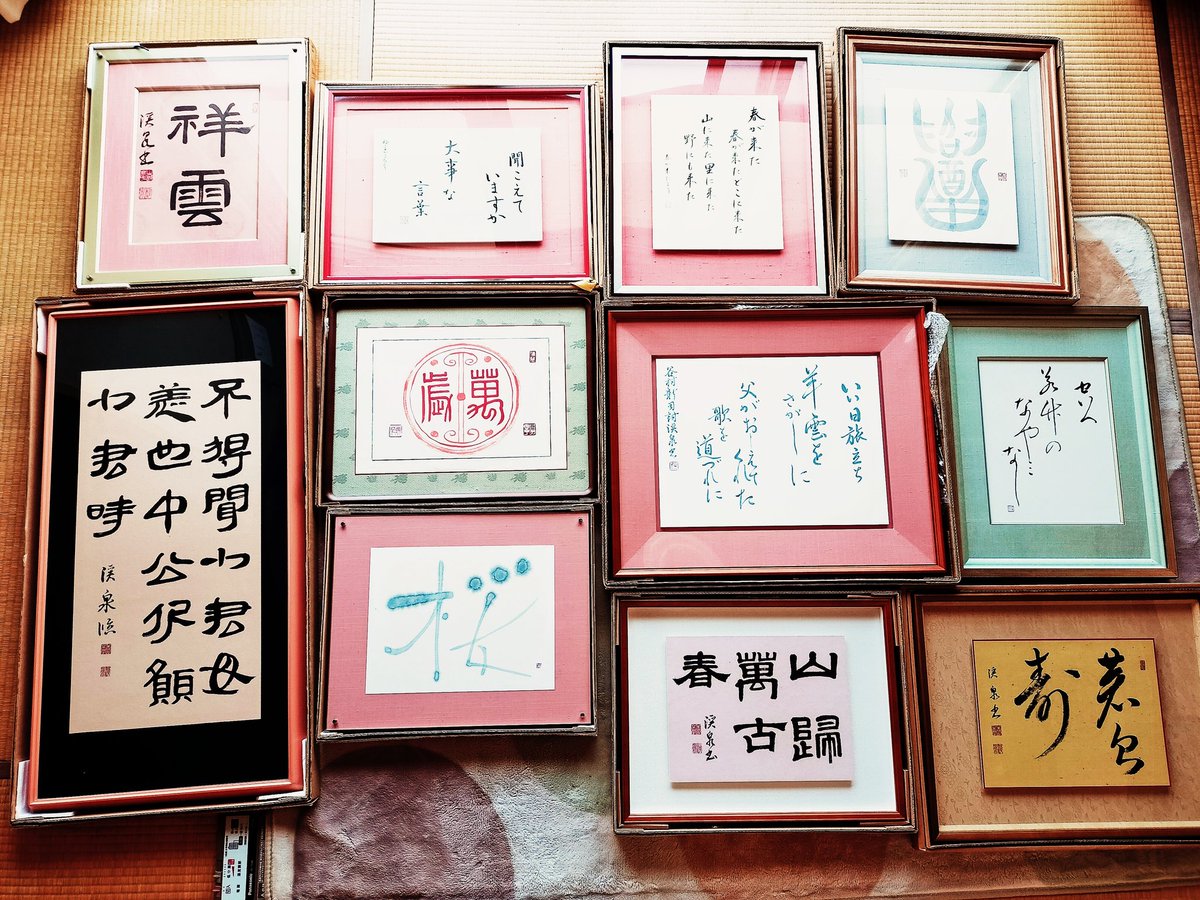 祥雲
渓泉書
聞こえて
いますか
大事な
言葉
春が来た
春が来たどこに来た
山に来た里に来た
野にも来た
不得聞小君毋
恙也中公伏願
小君時
渓泉臨
萬歳
桜
いゝ日旅立ち
羊雲を
さがしに
父がおしえてくれた
歌を道づれに
谷村新司詩渓泉書
山歸
萬古
春
渓泉書
寿
渓泉書
Panasonic